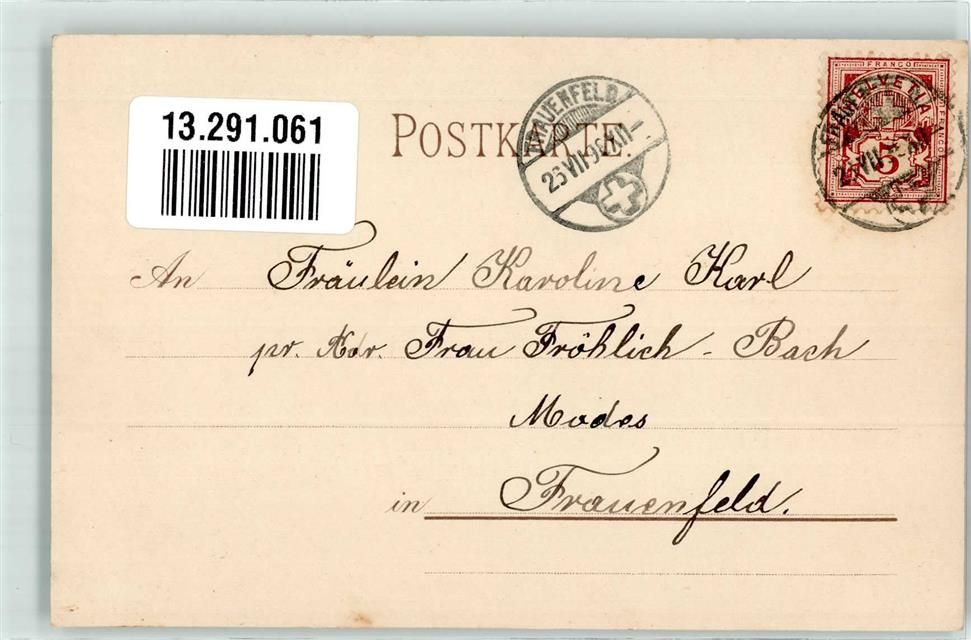 13.291.061
POSTKARTE.
FRAUENFELD
26 VII 96 XII-
FRANCO
5
An Fräulein Karoline Karl
pr. Adr. Frau Fröhlich - Bach
Modes
in Frauenfeld.